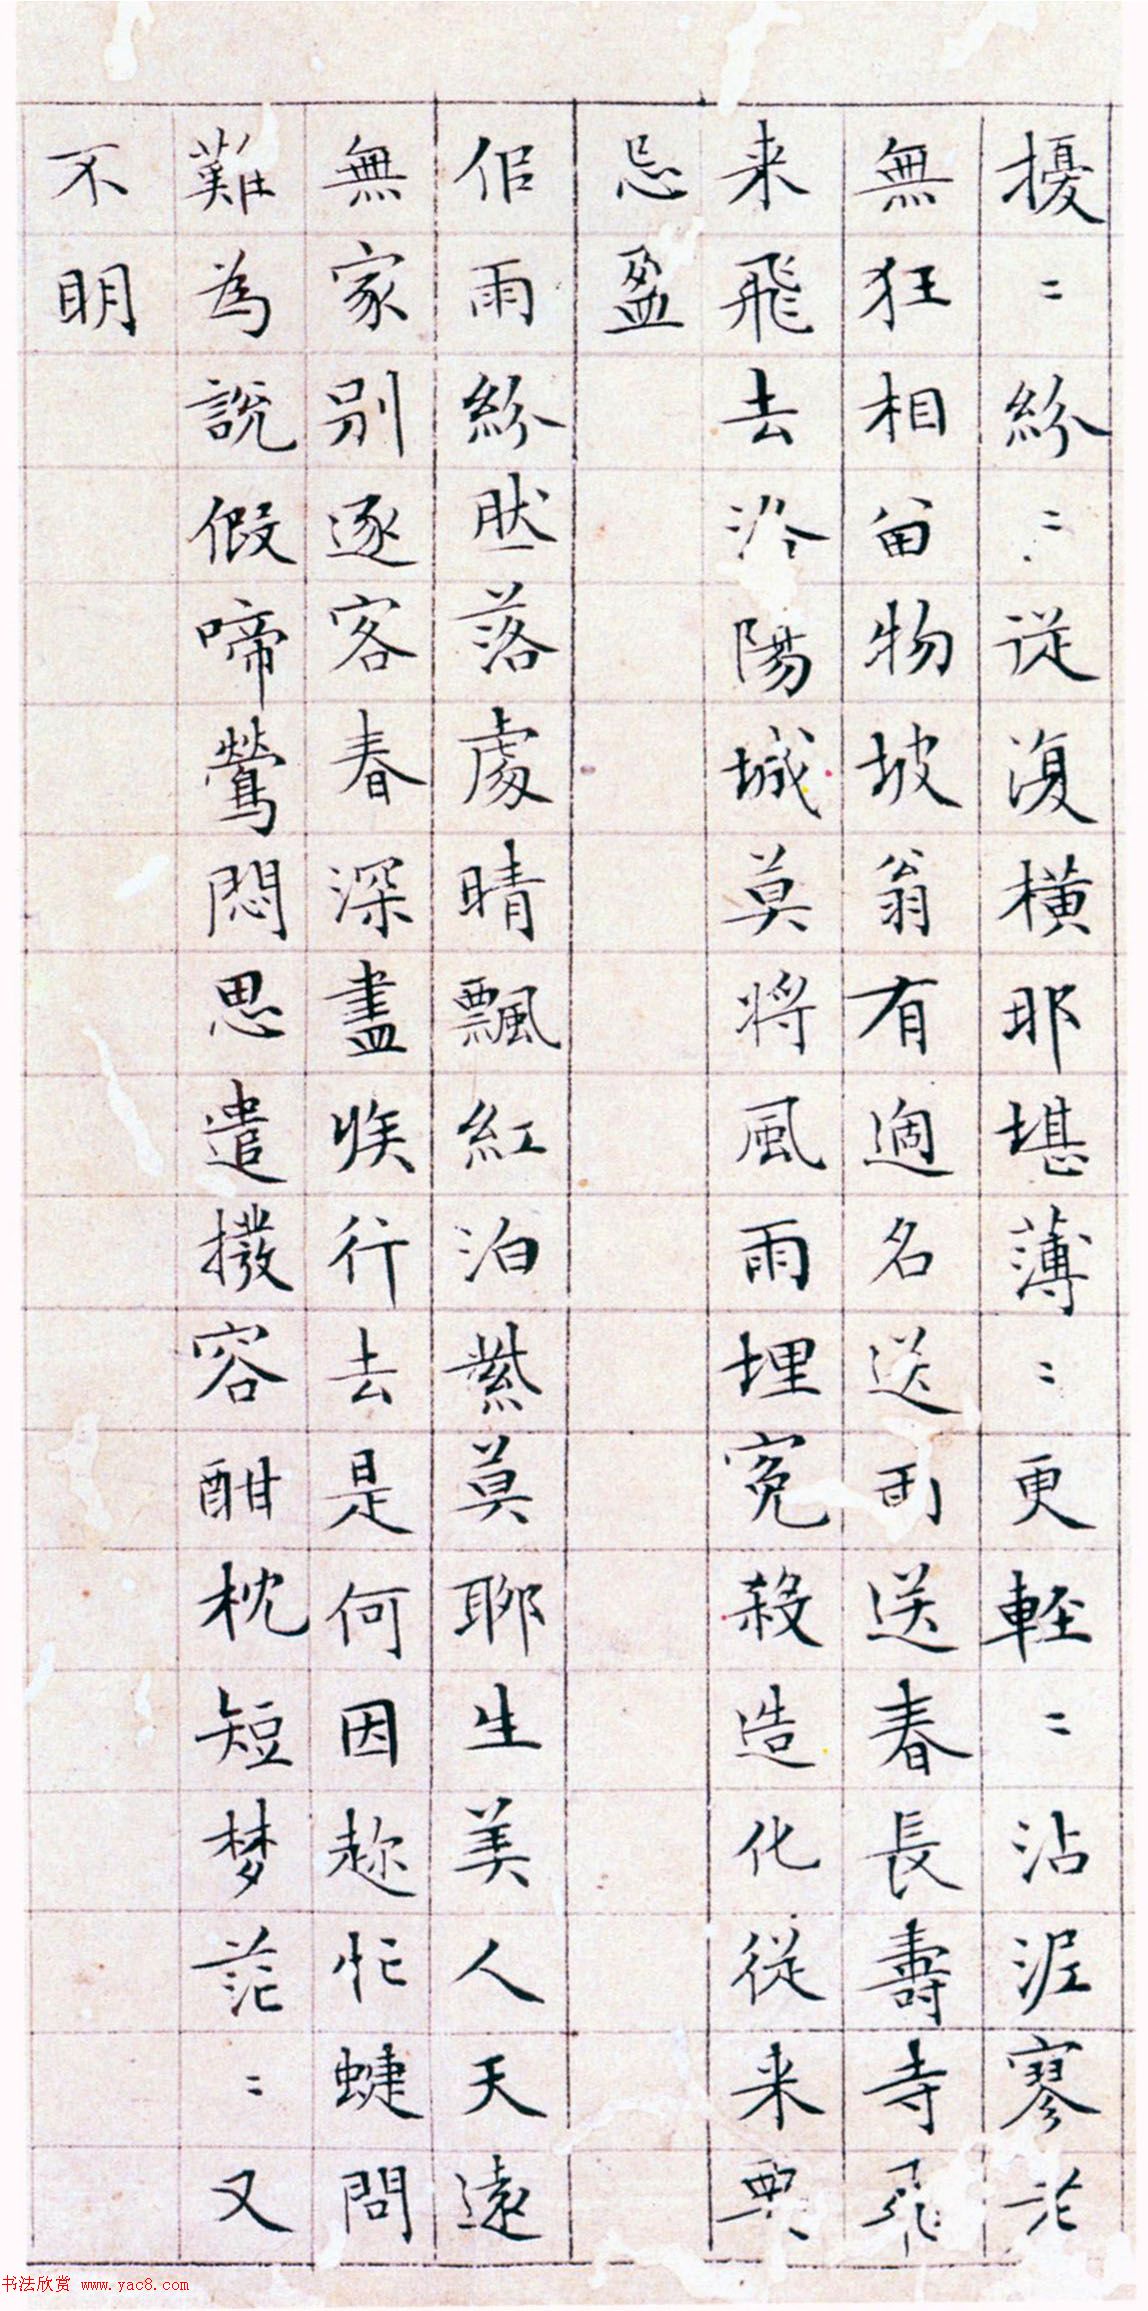 擾〻紛〻従復橫那堪薄〻更輕〻沾泥寥老
無狂相留物坡翁有過名送雨送春長壽寺飛
来飛去洛陽城莫將風雨埋冤殺造化從来要
忌盈
佀雨紛肰落處晴飄紅泊紫莫聊生美人天遠
無家别逐客春深盡族行去是何因趂忙蜨問
難為說假啼鶯悶思遣撥容酣枕短梦茫〻又
不明
书法欣赏 www.yac8.com